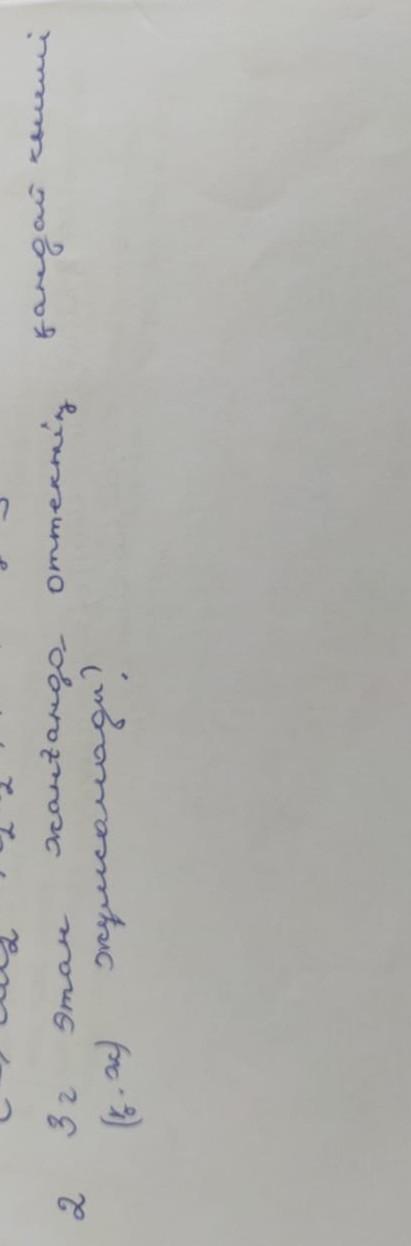 2 3г этан жанғанда оттектің қандай көлемі
(қ.ж) жұмсалады?